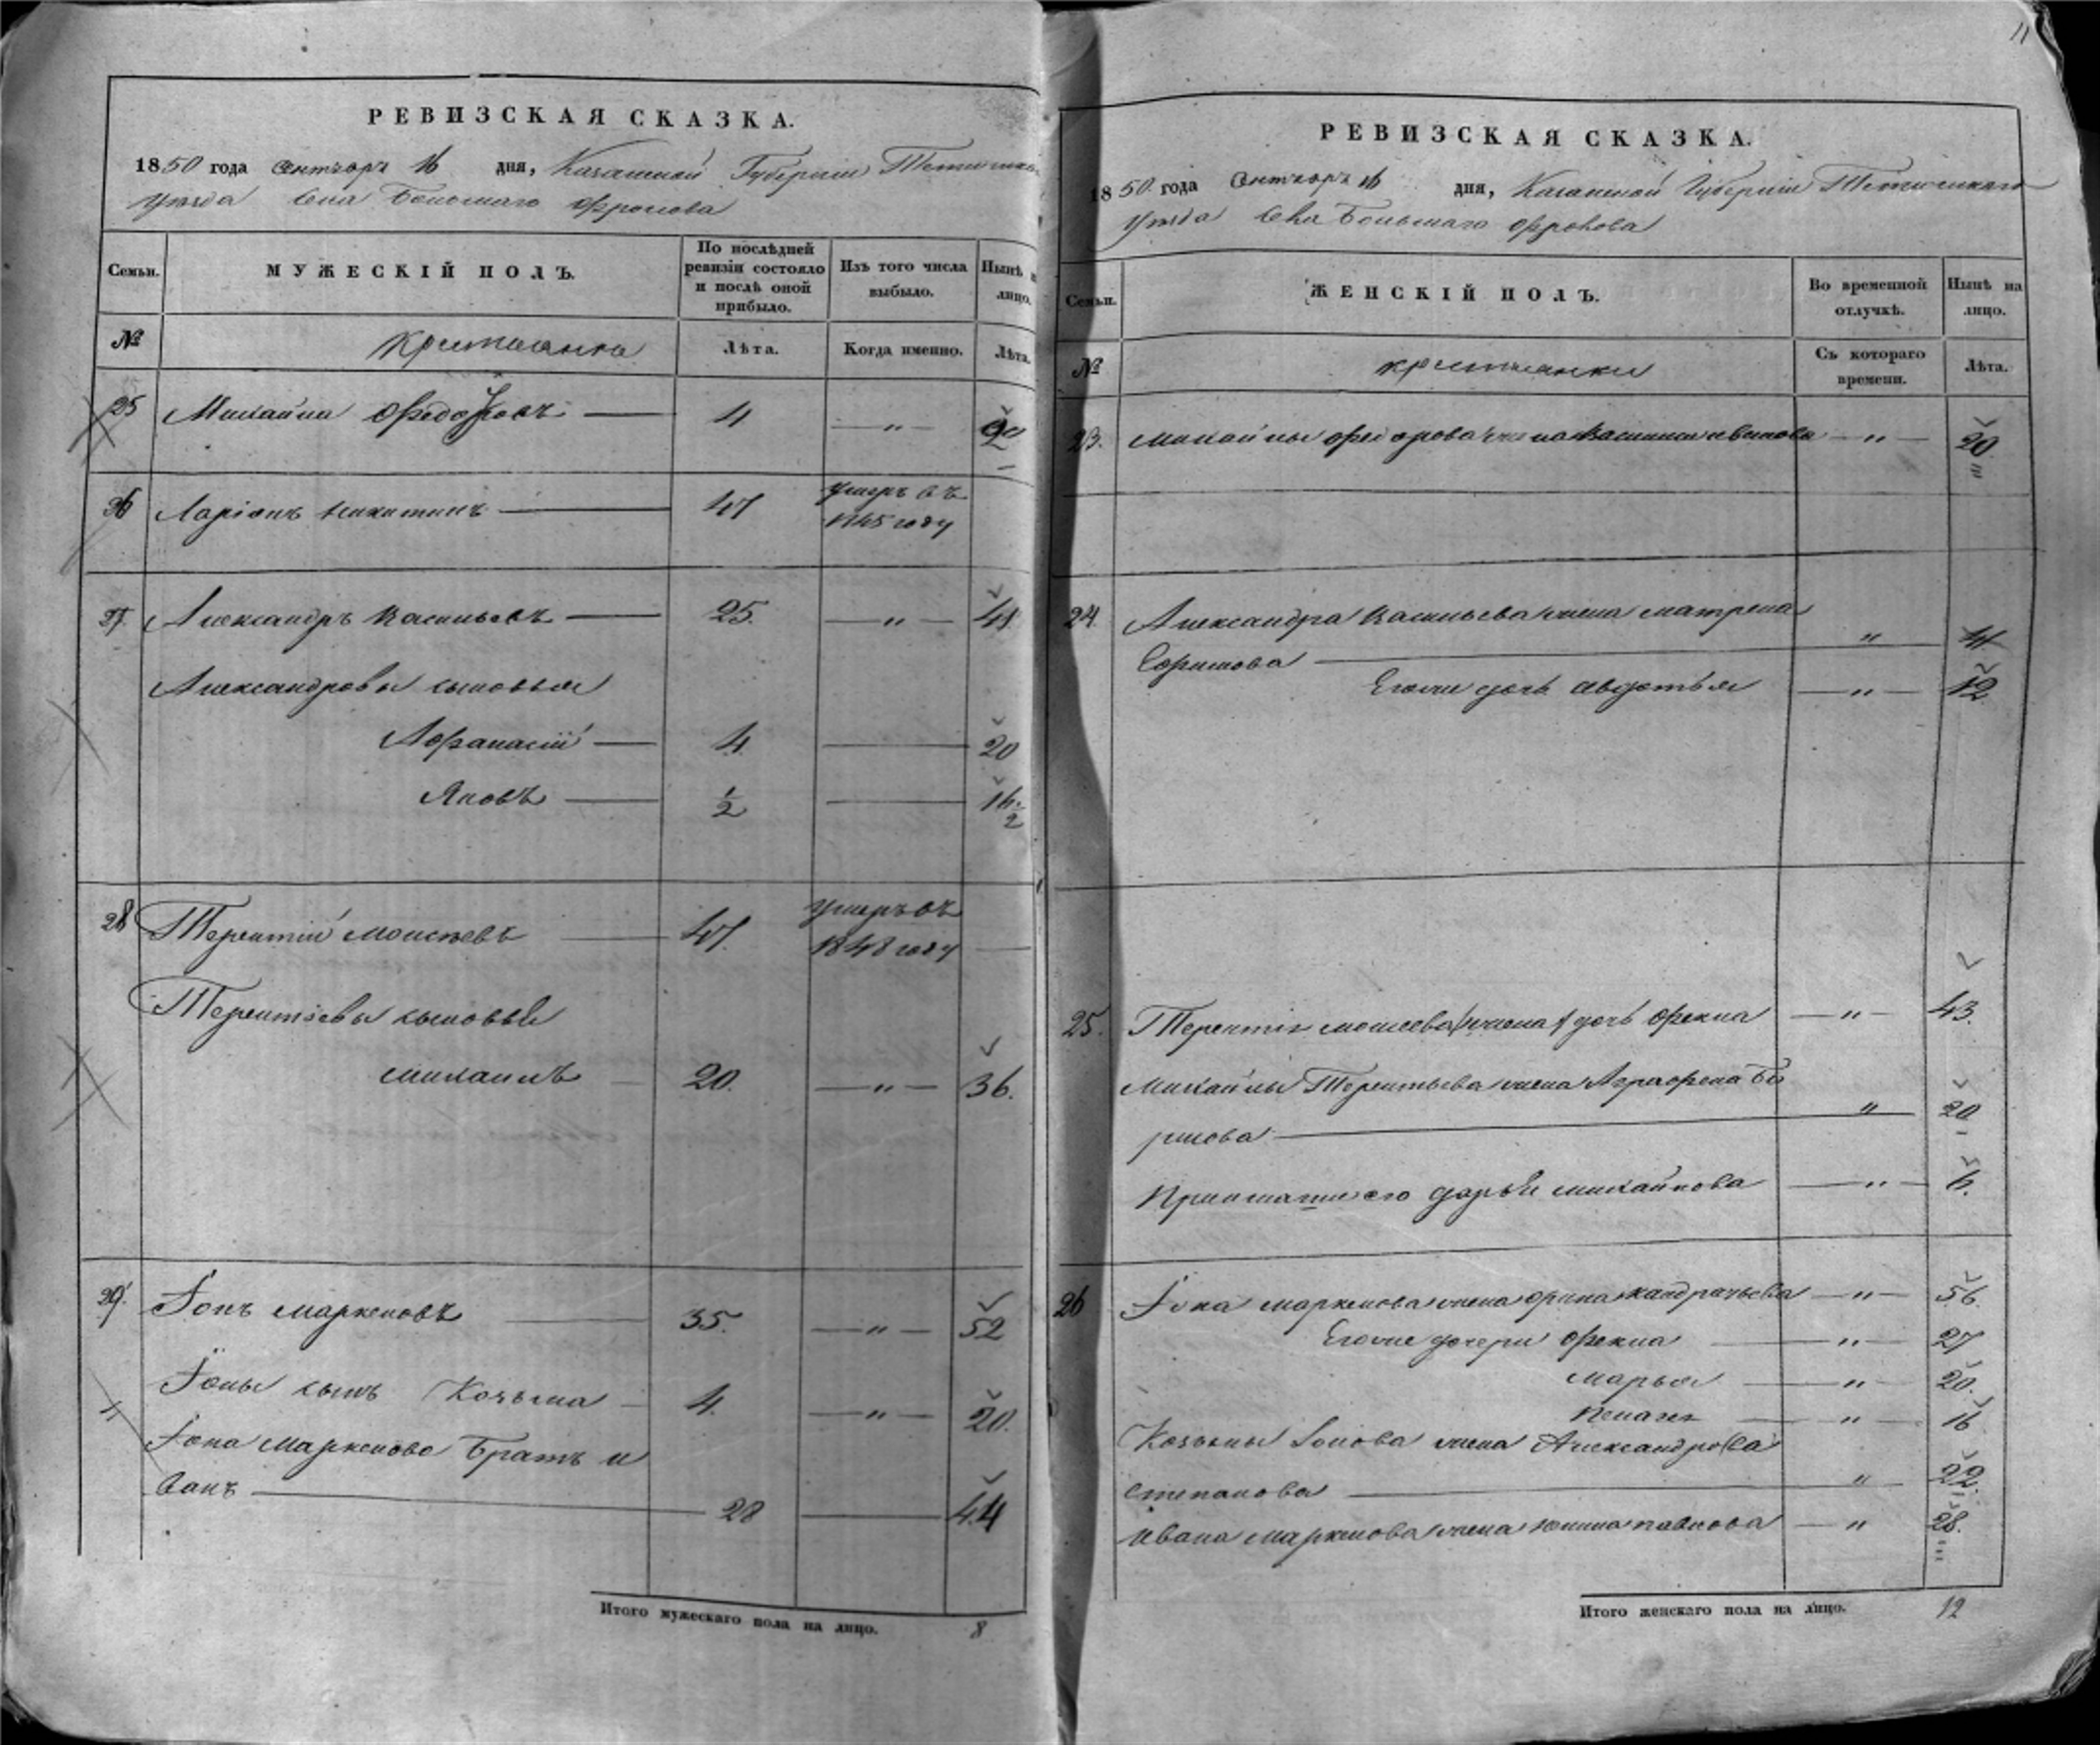 11
РЕВИЗСКАЯ СКАЗКА.
1850 года Сентября 16 дня, Казанской Губерніи
уезда Села Большаго Фролова
Семьи.
МУЖЕСКІЙ ПОЛЪ.
По послѣдней ревизіи состояло и послѣ оной прибыло.
Изъ того числа выбыло.
Нынѣ на лицо.
№
Крестьянки
Лѣта.
Когда именно.
Лѣта.
25 Михайла Федоровъ — 4 — " — 20
26 Ларіонъ Никитинъ — 47 умеръ въ
1845 году
27 Александръ Васильевъ — 25. — " — 41
Александровы сыновья
Афанасій — 4. — 20
Яковъ — 1/2 — 16 1/2
28 Терентій Моисеевъ — 47. умеръ въ
1848 году —
Терентіевы сыновья
Михаилъ — 20. — " — 36.
29 Іонъ Маркеловъ — 35. — " — 52
Іоны сынъ Козьма — 4. — " — 20.
Іона Маркелова Братъ И
ванъ — 28 — 44
Итого мужескаго пола на лицо. 8
РЕВИЗСКАЯ СКАЗКА.
1850 года Сентября 16 дня, Казанской Губерніи Тетюшскаго
уезда Села Большаго Фролова
Семьи.
ЖЕНСКІЙ ПОЛЪ.
Во временной отлучкѣ.
Нынѣ на лицо.
№
крестьянки
Съ котораго времени.
Лѣта.
23. Михайлы Федорова жена Иванова — " — 20
24. Александра Васильева жена Матрена
Ефимова — " — 41
Егоже дочь Авдотья — " — 12
25. Терентія Моисеева жена дочь Фекла — " — 43.
Михайлы Терентьева жена Аграфена Бо
рисова — " 20
его Дарья Михайлова — " — 6.
26 Іона Маркелова жена Орина Кандратьева — " — 56.
Егоже дочери Фекла — " — 27
Марья — " — 20.
Пелагея — " — 16
Козьмы Іонова жена Александра
Степанова — " 22.
Ивана Маркелова жена Павлова — " 28.
Итого женскаго пола на лицо. 12